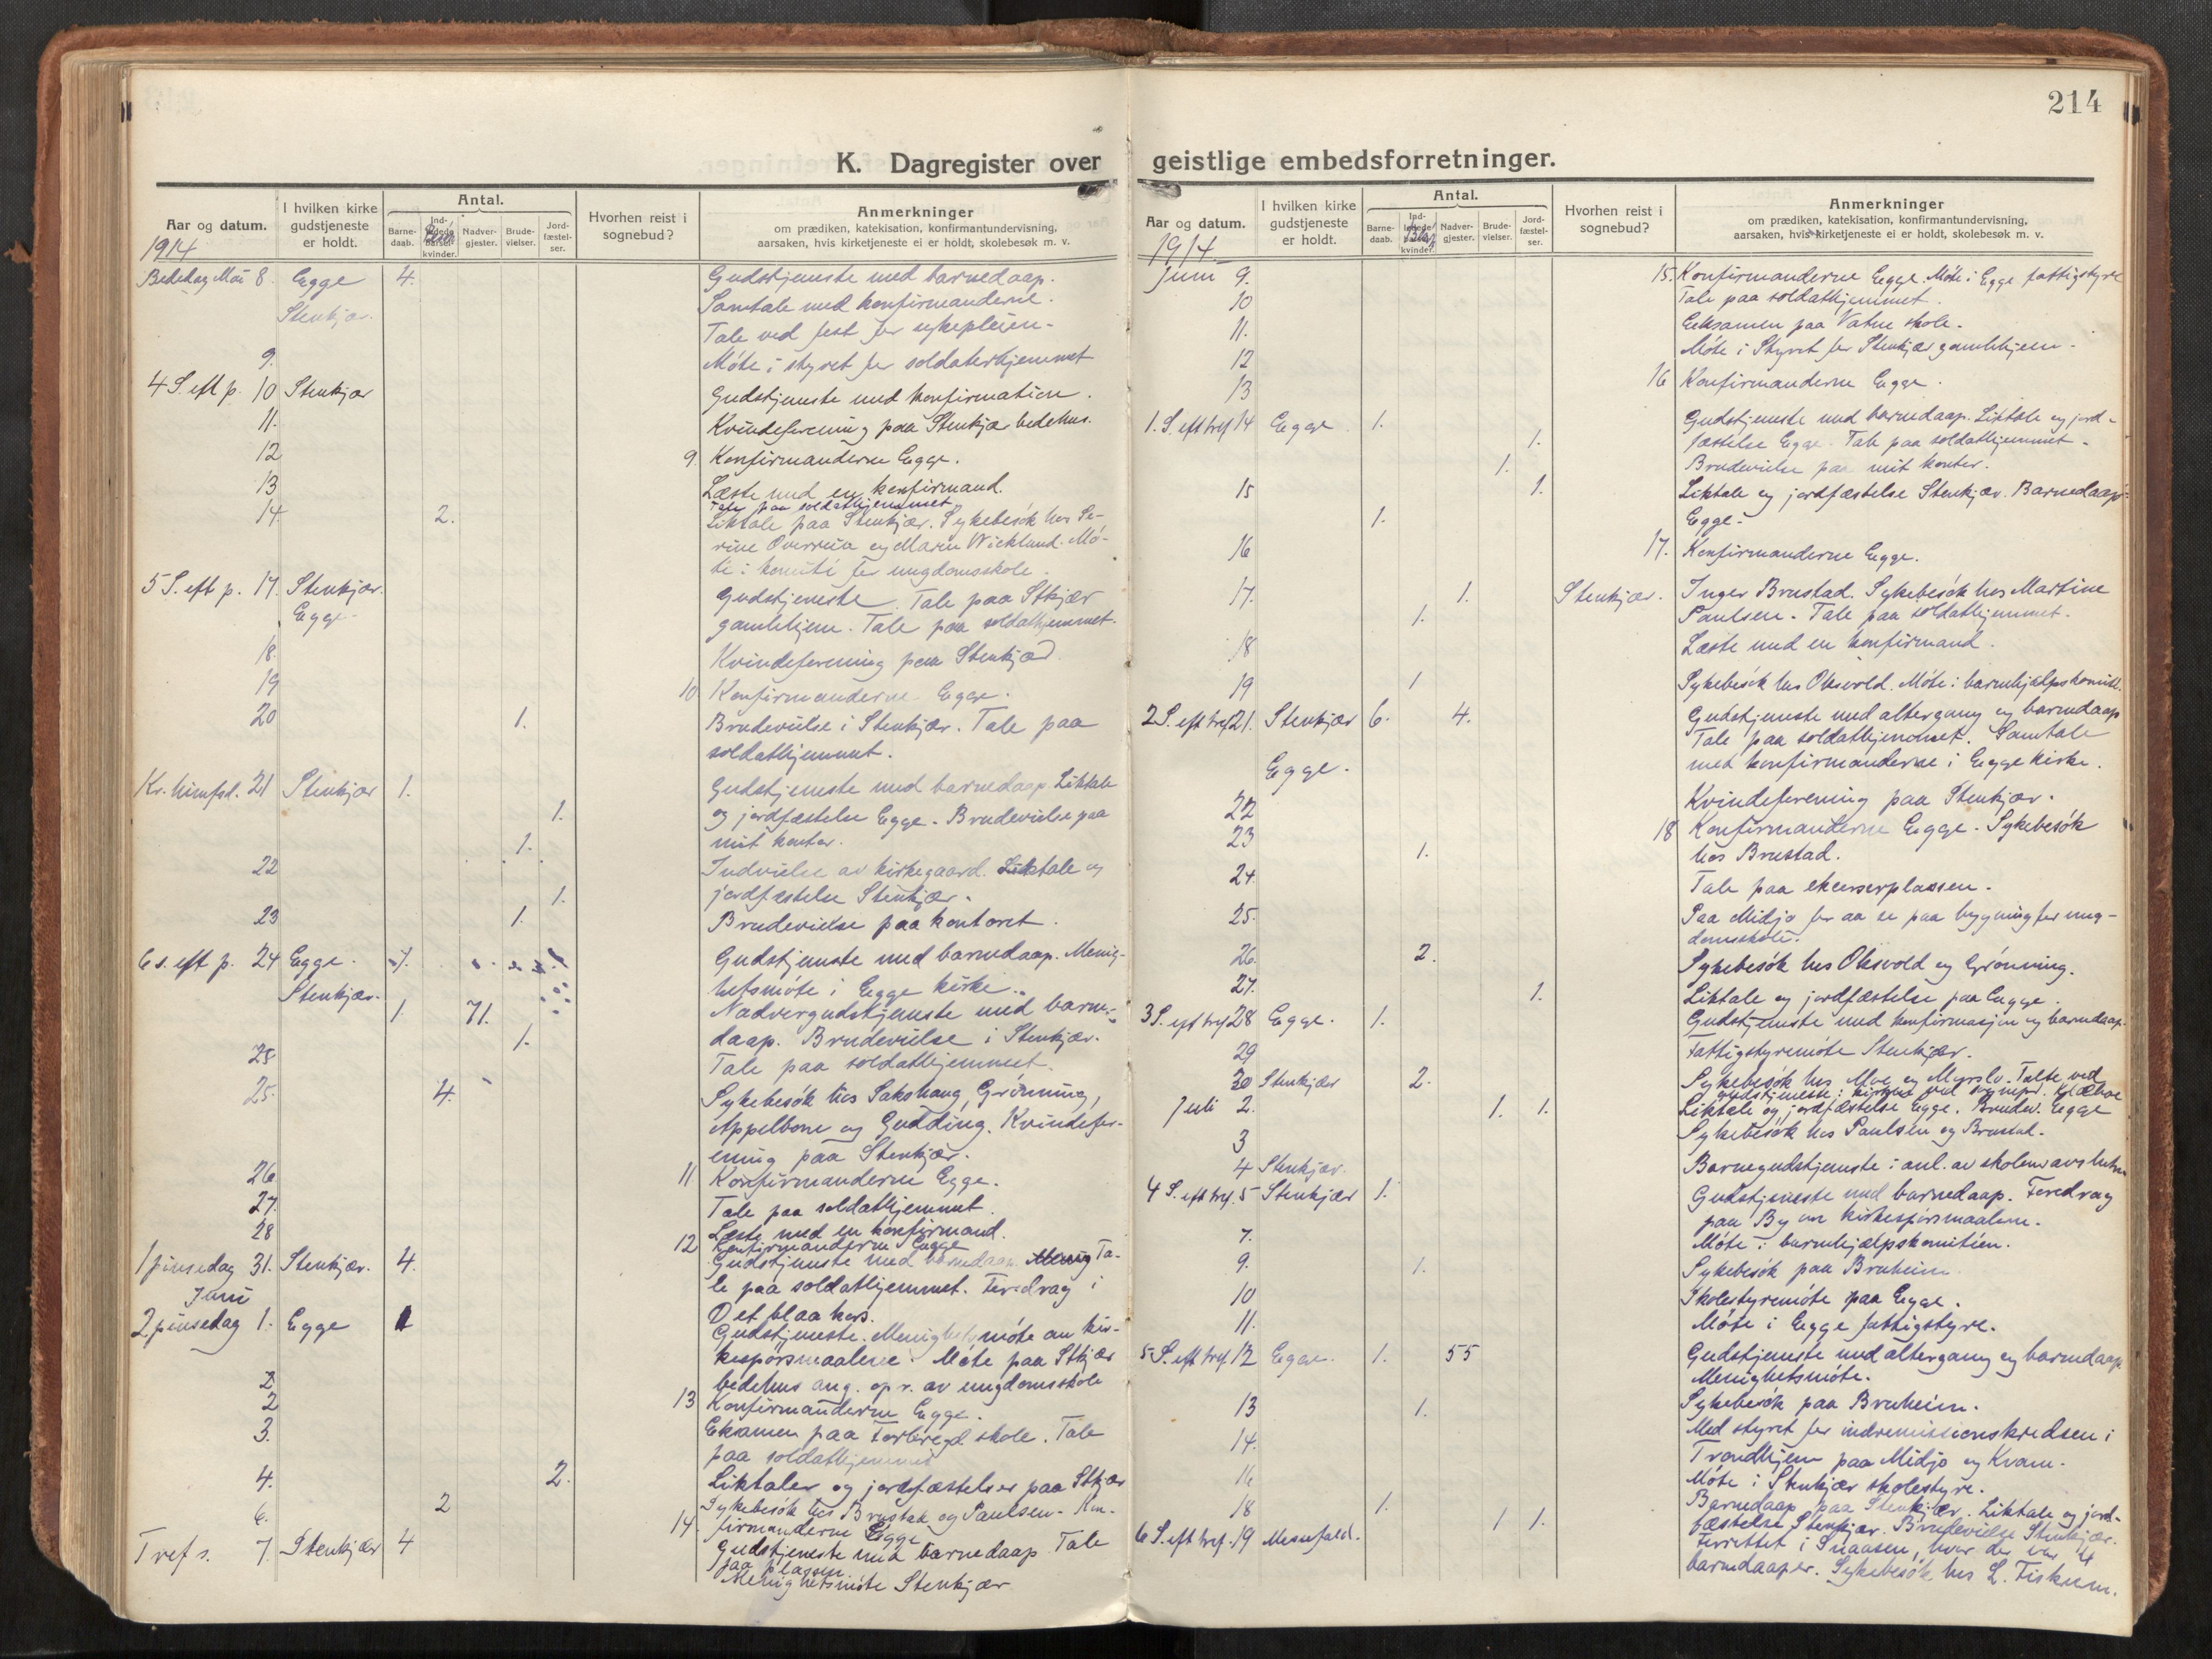 214
K. Dagregister over geistlige embedsforretninger.
Aar og datum.
I hvilken kirke gudstjeneste er holdt.
Antal.
Barne-daab.
Ind-ledede barsel-kvinder.
Nadver-gjester.
Brude-vielser.
Jord-fæstel-ser.
Hvorhen reist i sognebud?
Anmerkninger
om prædiken, katekisation, konfirmantundervisning,
aarsaken, hvis kirketjeneste ei er holdt, skolebesøk m. v.
1914
Bededag Mai 8. Egge 4. Gudstjeneste med barnedaap.
Stenkjær. Samtale med konfirmanderne.
Tale ved fest for sykepleien.
9. Møte i styret for soldaterhjemmet
4 S. eft p. 10 Stenkjær Gudstjeneste med konfirmation.
11. Kvindeforening paa Stenkjær bedehus.
12 9. Konfirmanderne Egge.
13 Læste med en konfirmand.
Tale paa soldathjemmet
14 2. Liktale paa Stenkjær. Sykebesøk hos Se-
rine Overrein og Maren Wicklund. Mø-
te i komité for ungdomsskole.
5 S. eft p. 17. Stenkjær. Gudstjeneste. Tale paa Stkjær
Egge. gamlehjem. Tale paa soldathjemmet.
18. Kvindeforening paa Stenkjær.
19 10 Konfirmanderne Egge.
20 1. Brudevielse i Stenkjær. Tale paa
soldathjemmet.
Kr. himfrd. 21 Stenkjær 1. Gudstjeneste med barnedaap Liktale
1. og jordfæstelse Egge. Brudevielse paa
1. mit kontor.
22 Indvielse av kirkegaard. Liktale og
1. jordfæstelse Stenkjær.
23 1. Brudevielse paa kontoret.
6 s. eft p. 24 Egge. Gudstjeneste med barnedaap. Menig-
Stenkjær. hetsmøte i Egge kirke.
1 71. Nadvergudstjeneste med barne-
1. daap. Brudevielse i Stenkjær.
Tale paa soldathjemmet.
25. 4. Sykebesøk hos Sakshaug, Grönning,
Appelbone og Gudding. Kvindefor-
ening paa Stenkjær.
26 11 Konfirmanderne Egge.
27. Tale paa soldathjemmet.
28 Læste med en konfirmand.
12 Konfirmanderne Egge
1 pinsedag 31. Stenkjær. 4. Gudstjeneste med barnedaap. Ta-
le paa soldathjemmet. Foredrag i
Juni Det blaa kors.
2 pinsedag 1. Egge 1 Gudstjeneste. Menighetsmøte om kir-
kespørsmaalene. Møte paa Stkjær
2 bedehus ang. opr. av ungdomsskole
2 13 Konfirmanderne Egge.
3. Eksamen paa skole. Tale
paa soldathjemmet
4. 2. Liktaler og jordfæstelser paa Stkjær
6. 2 Sykebesøk hos Brustad og Paulsen. Kon-
14. firmanderne Egge
Tref s. 7. Stenkjær 4 Gudstjeneste med barnedaap Tale
paa plassen
Menighetsmøte Stenkjær
Aar og datum.
I hvilken kirke gudstjeneste er holdt.
Antal.
Barne-daab.
Ind-ledede barsel-kvinder.
Nadver-gjester.
Brude-vielser.
Jord-fæstel-ser.
Hvorhen reist i sognebud?
Anmerkninger
om prædiken, katekisation, konfirmantundervisning,
aarsaken, hvis kirketjeneste ei er holdt, skolebesøk m. v.
1914
Juni 9. 15. Konfirmanderne Egge. Møte i Egge fattigstyre
10 Tale paa soldathjemmet.
11. Eeksamen paa Vatne skole.
12 Møte i Styret for Stenkjær gamlehjem.
13 16 Konfirmanderne Egge.
1. S. eft tref 14 Egge 1. Gudstjeneste med barnedaap. Liktale og jord-
1. fæstelse Egge. Tale paa soldathjemmet.
1. Brudevielse paa mit kontor.
15 1. Liktale og jordfæstelse Stenkjær. Barnedaap
1. Egge.
16 17. Konfirmanderne Egge.
17. 1. Stenkjær. Inger Brustad. Sykebesøk hos Martine
1. Paulsen. Tale paa soldathjemmet.
18 Læste med en konfirmand.
19 1 Sykebesøk hos Oksvold. Møte i barnehjælpskomité.
2 S. eft tref 21. Stenkjær 6. 4. Gudstjeneste med altergang og barnedaap
Tale paa soldathjemmet. Samtale
Egge. med konfirmanderne i Egge kirke.
22 Kvindeforening paa Stenkjær.
23 18 Konfirmanderne Egge. Sykebesøk
1. hos Brustad.
24. Tale paa ekserserplassen.
25. Paa Midjo for aa se paa bygning for ung-
domsskole.
26. 2. Sykebesøk hos Oksvold og Grönning.
27. 1. Liktale og jordfæstelse paa Egge.
3 S. eft tref 28 Egge. 1. Gudstjeneste med konfirmasjon og barnedaap.
29 Fattigstyremøte Stenkjær.
30 Stenkjær 2. Sykebesøk hos Moe og Myrslo. Talte ved
gudstjeneste i kirken ved
Juli 2. 1. 1. Liktale og jordfæstelse Egge. Brudev. Egge
3 Sykebesøk hos Paulsen og Brustad.
4 Stenkjær. Barnegudstjeneste i anl. av skolens avslutn.
4 S. eft tref. 5 Stenkjær 1. Gudstjeneste med barnedaap. Foredrag
paa By om kirkespørsmaalene.
7. Møte i barnehjælpskomitéen.
9. 1. Sykebesøk paa Bruheim
10 Skolestyremøte paa Egge.
11. Møte i Egge fattigstyre.
5 S. eft tref. 12 Egge. 1. 55 Gudstjeneste med altergang og barnedaap
Menighetsmøte.
13 1. Sykebesøk paa Bruheim.
14. Med styret for indremissionskredsen i
Trondhjem paa Midjo og Kvam.
16 Møte i Stenkjær skolestyre.
18 1. Barnedaap paa Stenkjær. Liktale og jord-
1 1. fæstelse Stenkjær. Brudevielse Stenkjær.
6 S. eft tref. 19 Messefald. Forrettet i Snaasen, hvor der var 4
barnedaaper. Sykebesøk hos L. Fiskum.